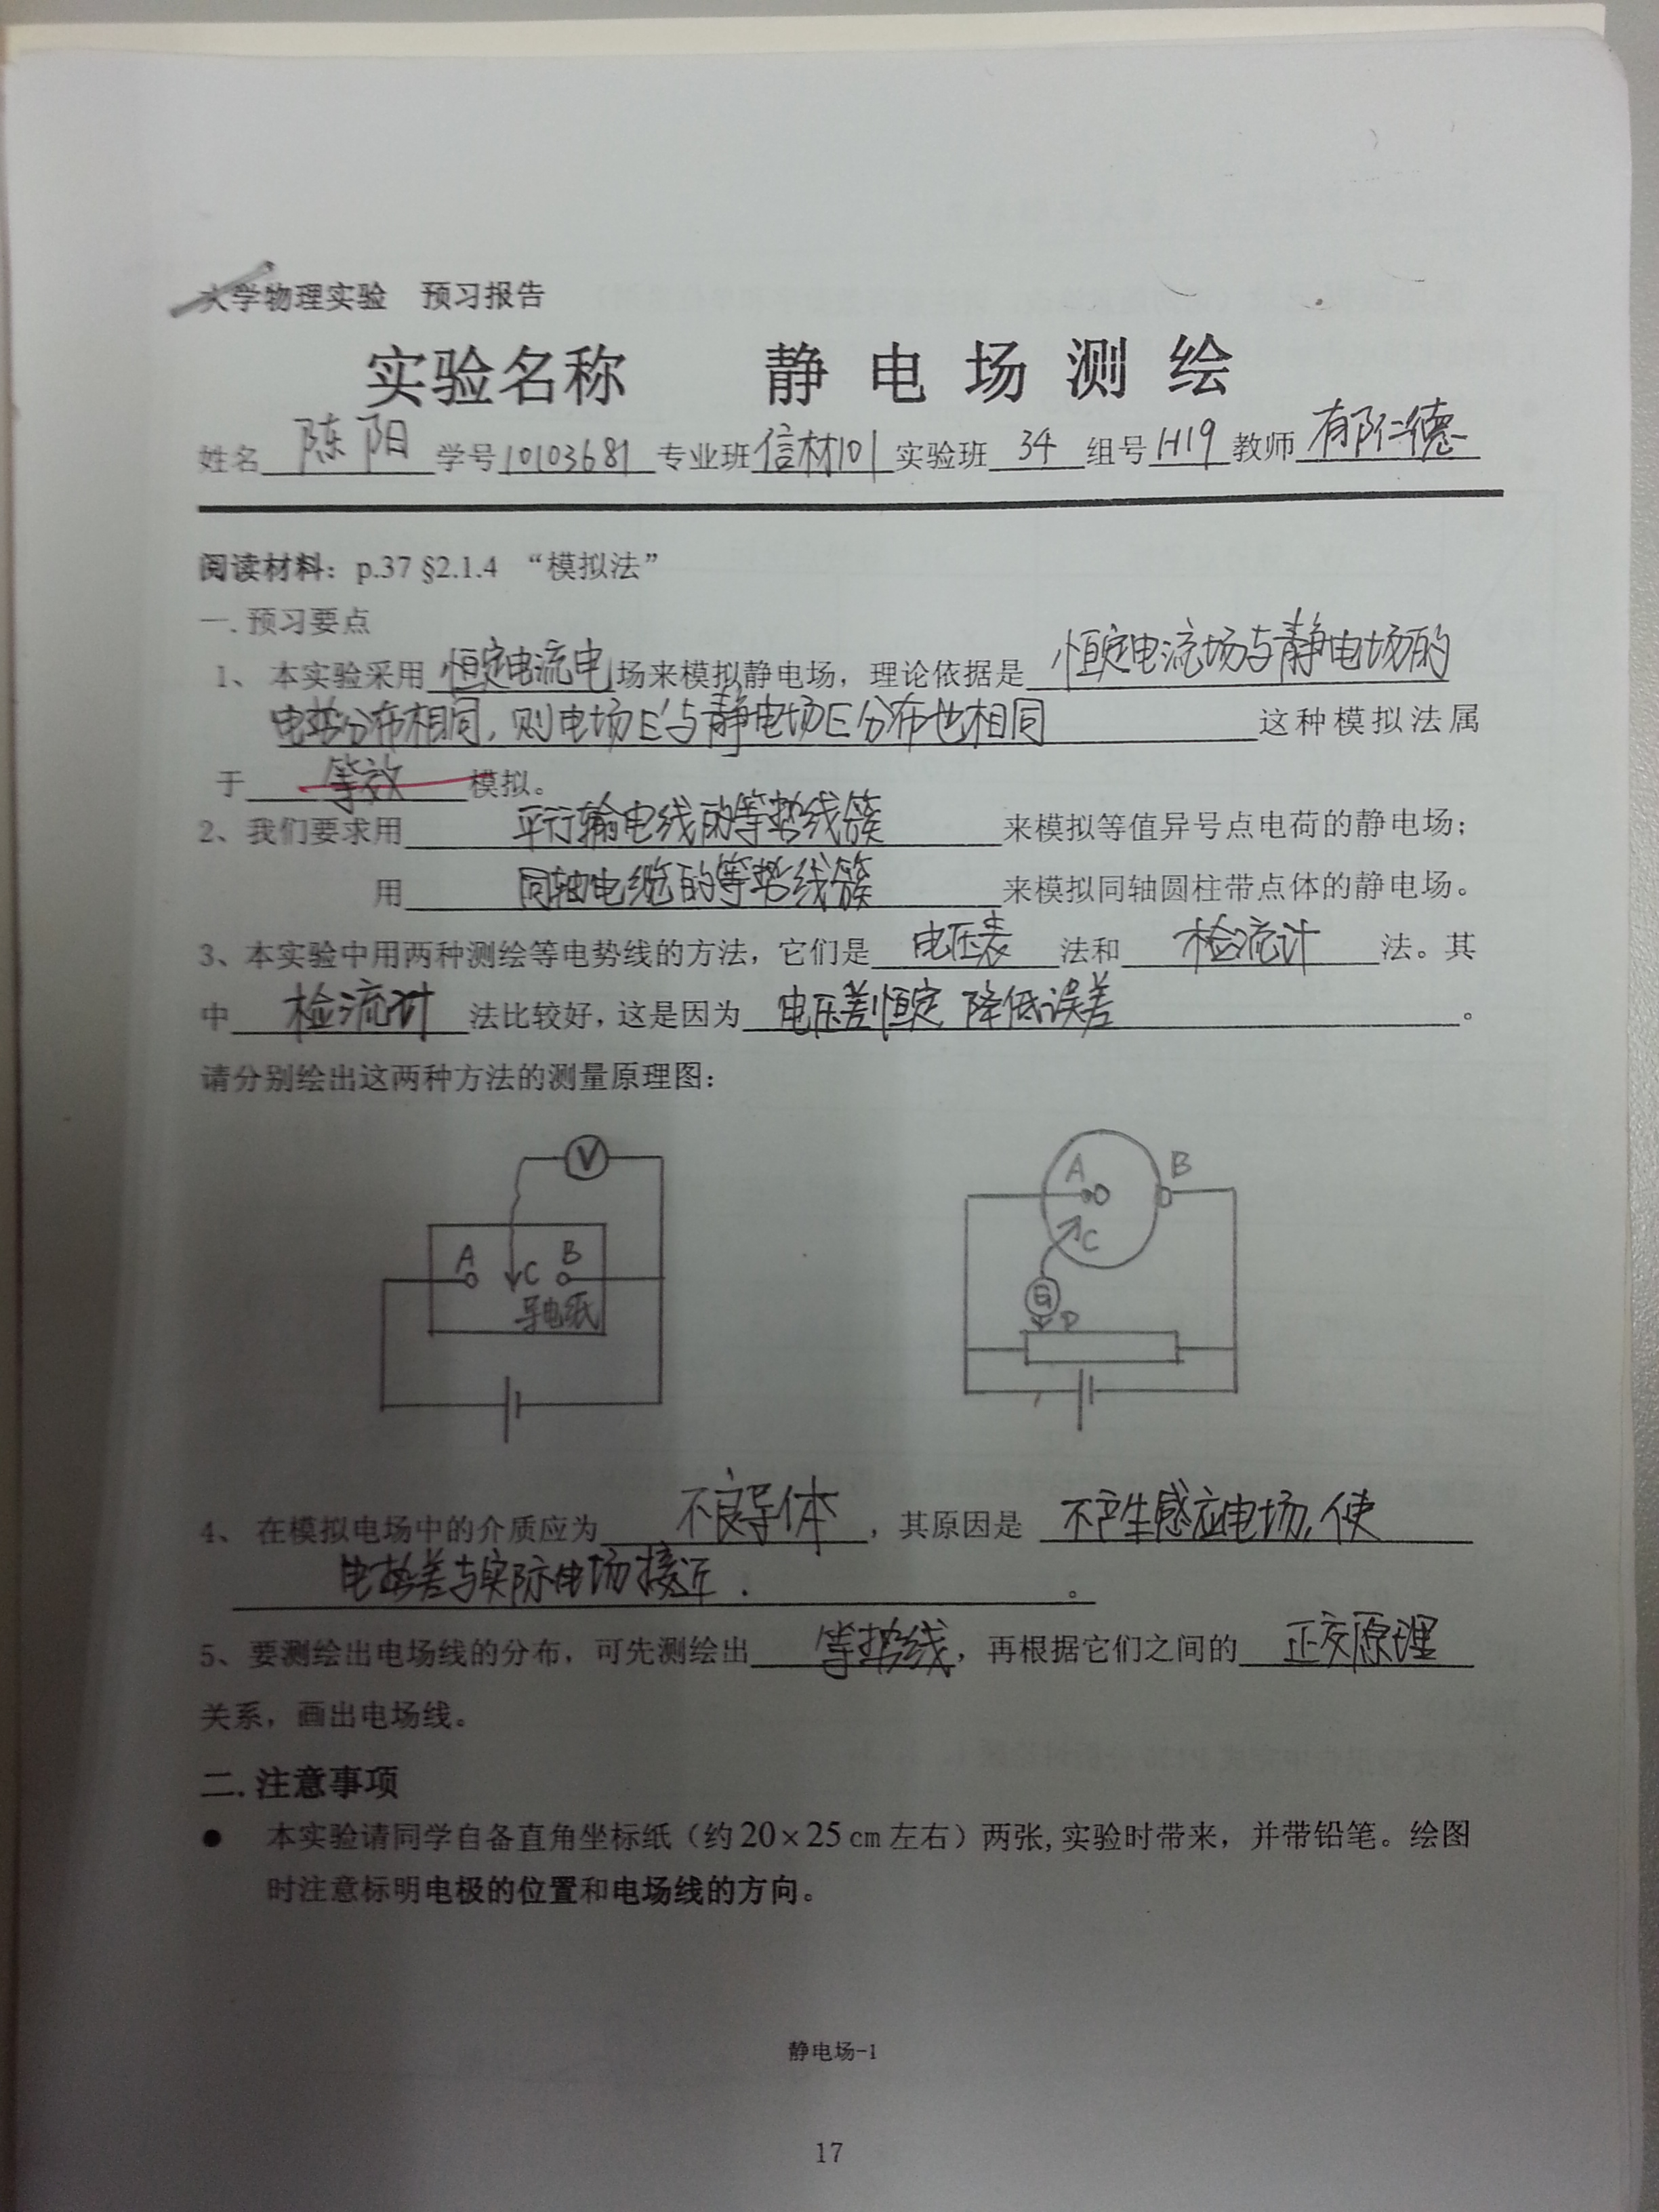 大学物理实验 预习报告
实验名称 静电场测绘
姓名 陈阳 学号 10103681 专业班 信材101 实验班 34 组号 H19 教师 郁仁德
阅读材料：p.37 §2.1.4 “模拟法”
一. 预习要点
1、本实验采用 恒定电流电 场来模拟静电场，理论依据是 恒定电流场与静电场的
电势分布相同，则电场E'与静电场E分布也相同 这种模拟法属
于 等效 模拟。
2、我们要求用 平行输电线的等势线簇 来模拟等值异号点电荷的静电场；
用 同轴电缆的等势线簇 来模拟同轴圆柱带点体的静电场。
3、本实验中用两种测绘等电势线的方法，它们是 电压表 法和 检流计 法。其
中 检流计 法比较好，这是因为 电压差恒定 降低误差 。
请分别绘出这两种方法的测量原理图：
V
A C B
导电纸
A B
C
G
D
4、在模拟电场中的介质应为 不良导体 ，其原因是 不产生感应电场，使
电势差与实际电场接近. 。
5、要测绘出电场线的分布，可先测绘出 等势线 ，再根据它们之间的 正交原理
关系，画出电场线。
二. 注意事项
● 本实验请同学自备直角坐标纸（约 20×25 cm 左右）两张,实验时带来，并带铅笔。绘图
时注意标明电极的位置和电场线的方向。
静电场-1
17